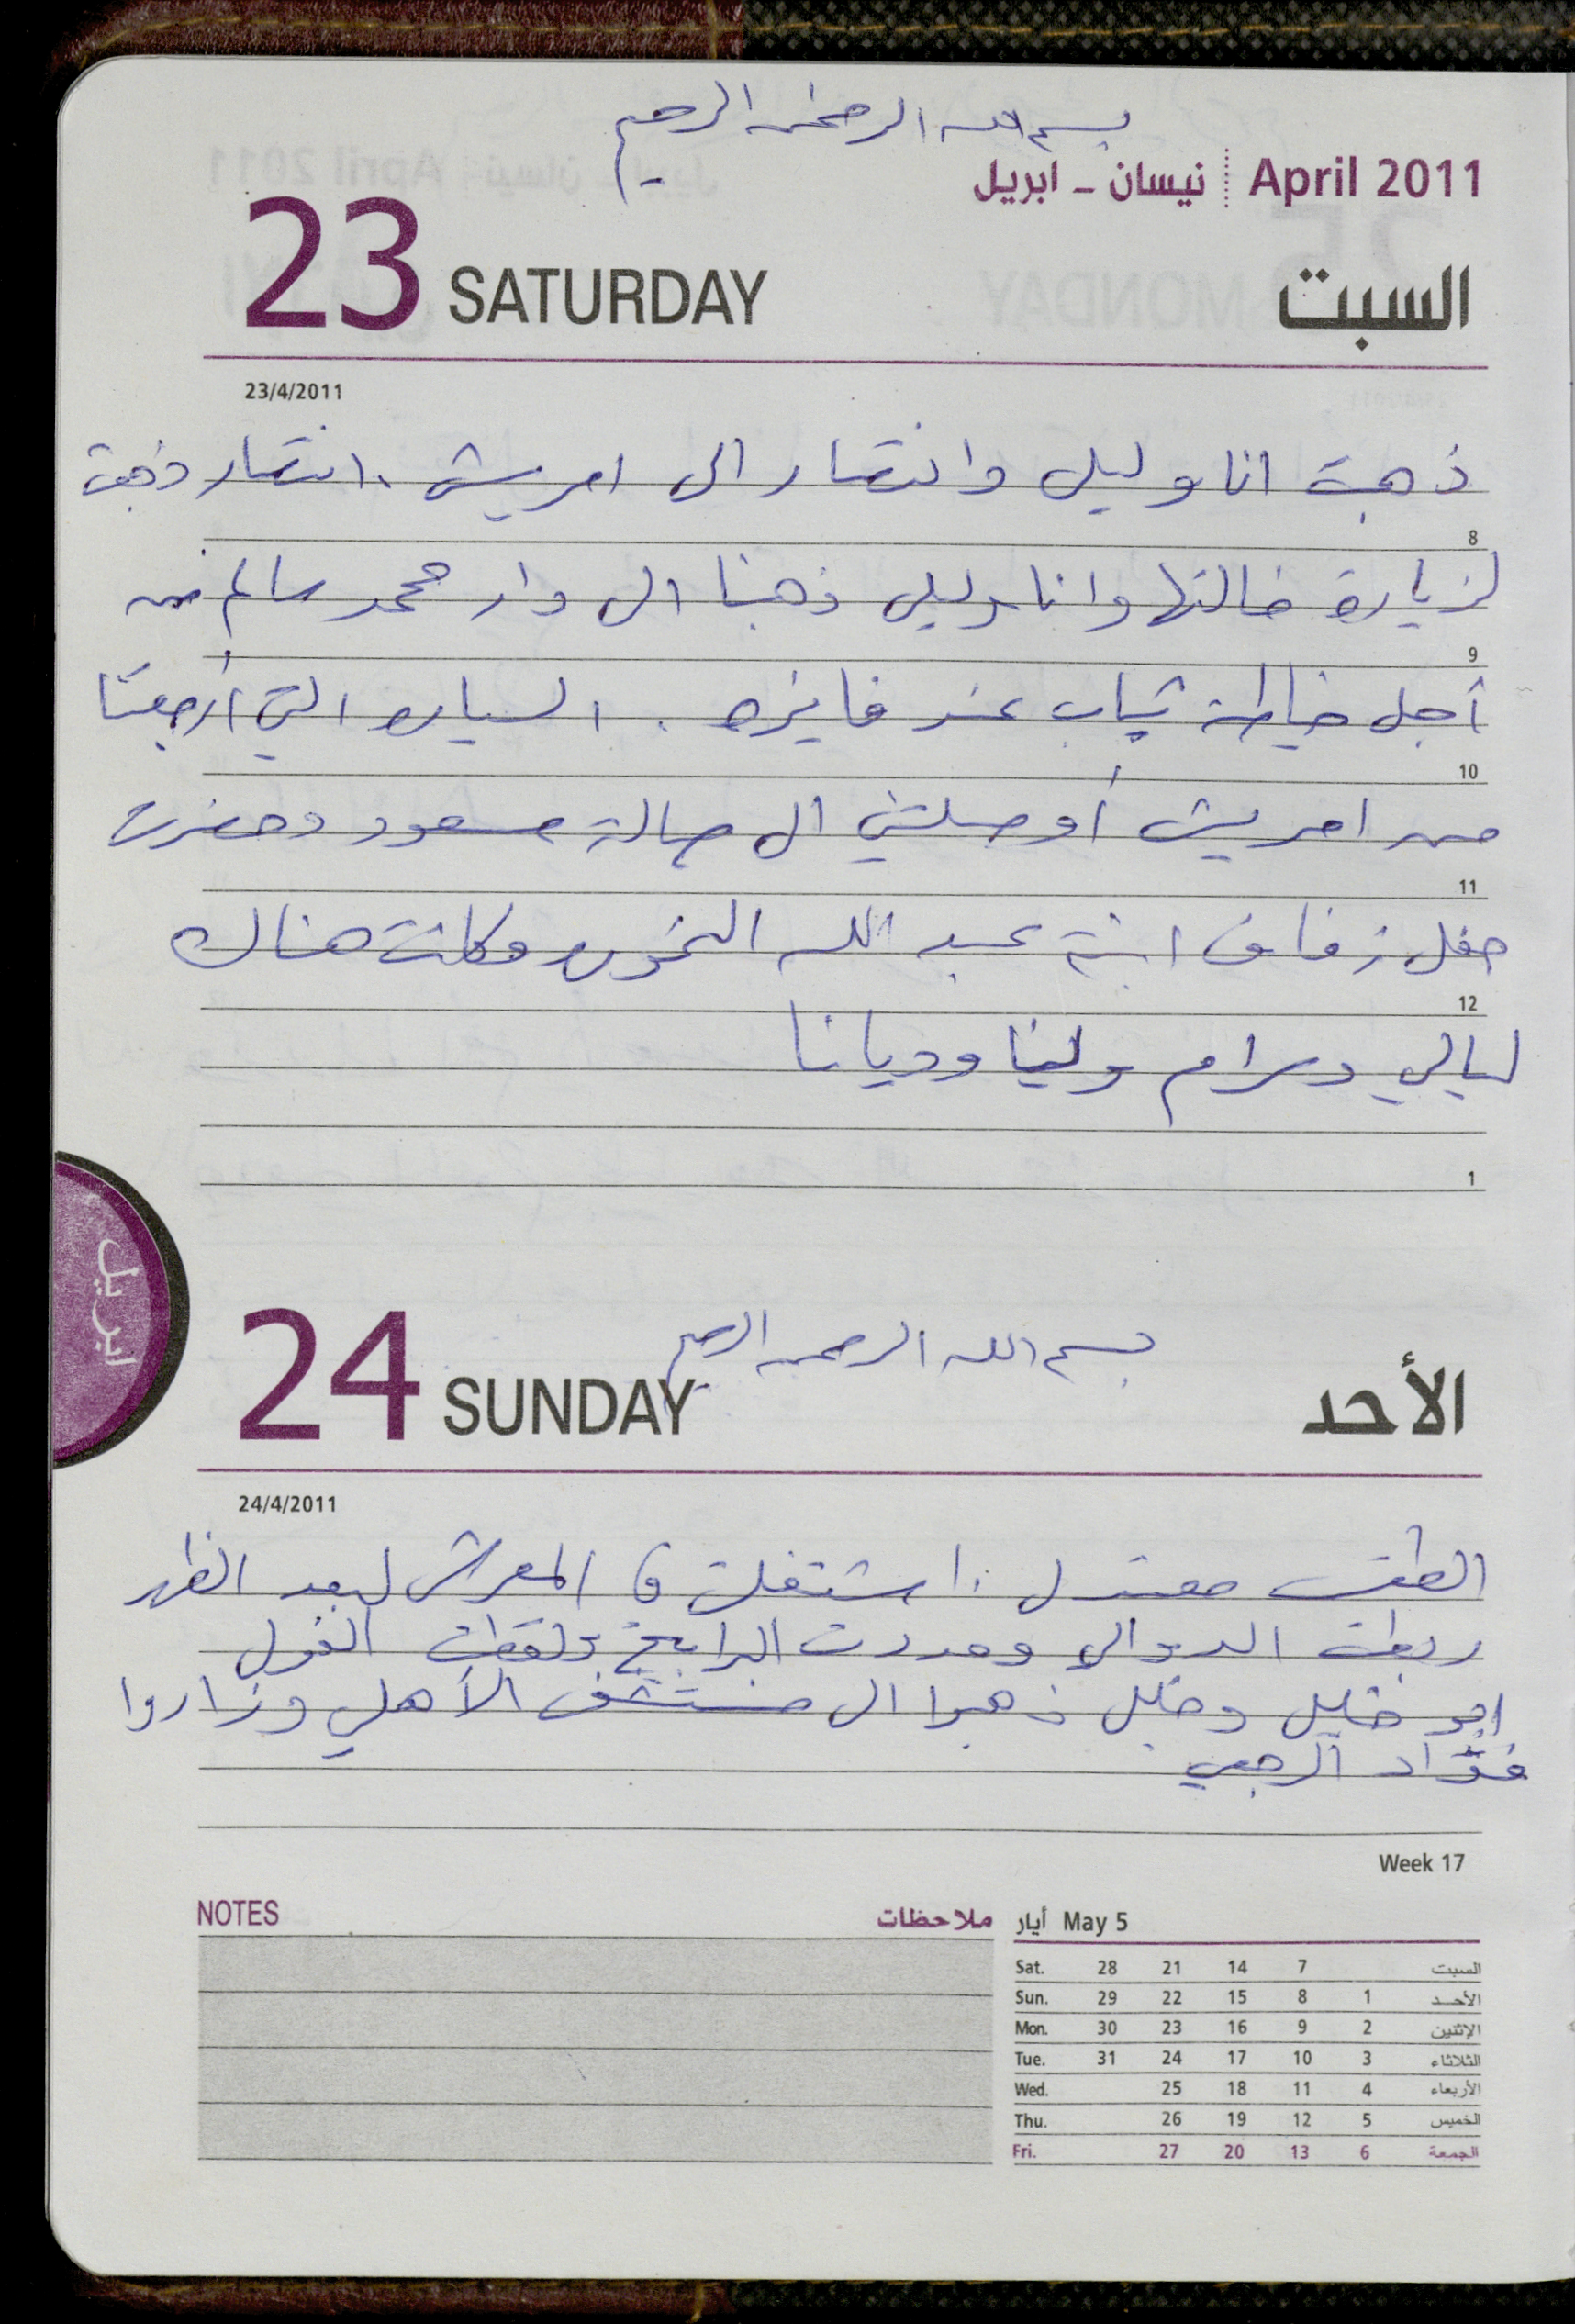 بسم الله الرحمن الرحيم
April 2011 نيسان - ابريل
23 SATURDAY السبت
23/4/2011
ذهبت انا وليلى وانتصار الى امريش . انتصار ذهبت
8
لزيارة خالتها وانا وليلى ذهبنا الى دار محمد سالم من
9
أجل خياطة ثياب عند فايزه . السياره التي أرجعتنا
10
من امريش أوصلتني الى صالة مسعود وحضرت
11
حفل زفاف ابنة عبد الله وكانت هناك
12
ليالي ومرام ولينا وديانا
1
ابريل
بسم الله الرحمن الرحيم
24 SUNDAY الأحد
24/4/2011
الطقس معتدل . اشتغلت في المعرش لبعد الظهر
ربطت الدوالي ومددت البرابيج ولقطت الفول
ابو خليل وخليل ذهبوا الى مستشفى الأهلي وزاروا
فؤاد الرجبي
Week 17
NOTES ملاحظات
أيار May 5
Sat. 28 21 14 7 السبت
Sun. 29 22 15 8 1 الأحد
Mon. 30 23 16 9 2 الإثنين
Tue. 31 24 17 10 3 الثلاثاء
Wed. 25 18 11 4 الأربعاء
Thu. 26 19 12 5 الخميس
Fri. 27 20 13 6 الجمعة